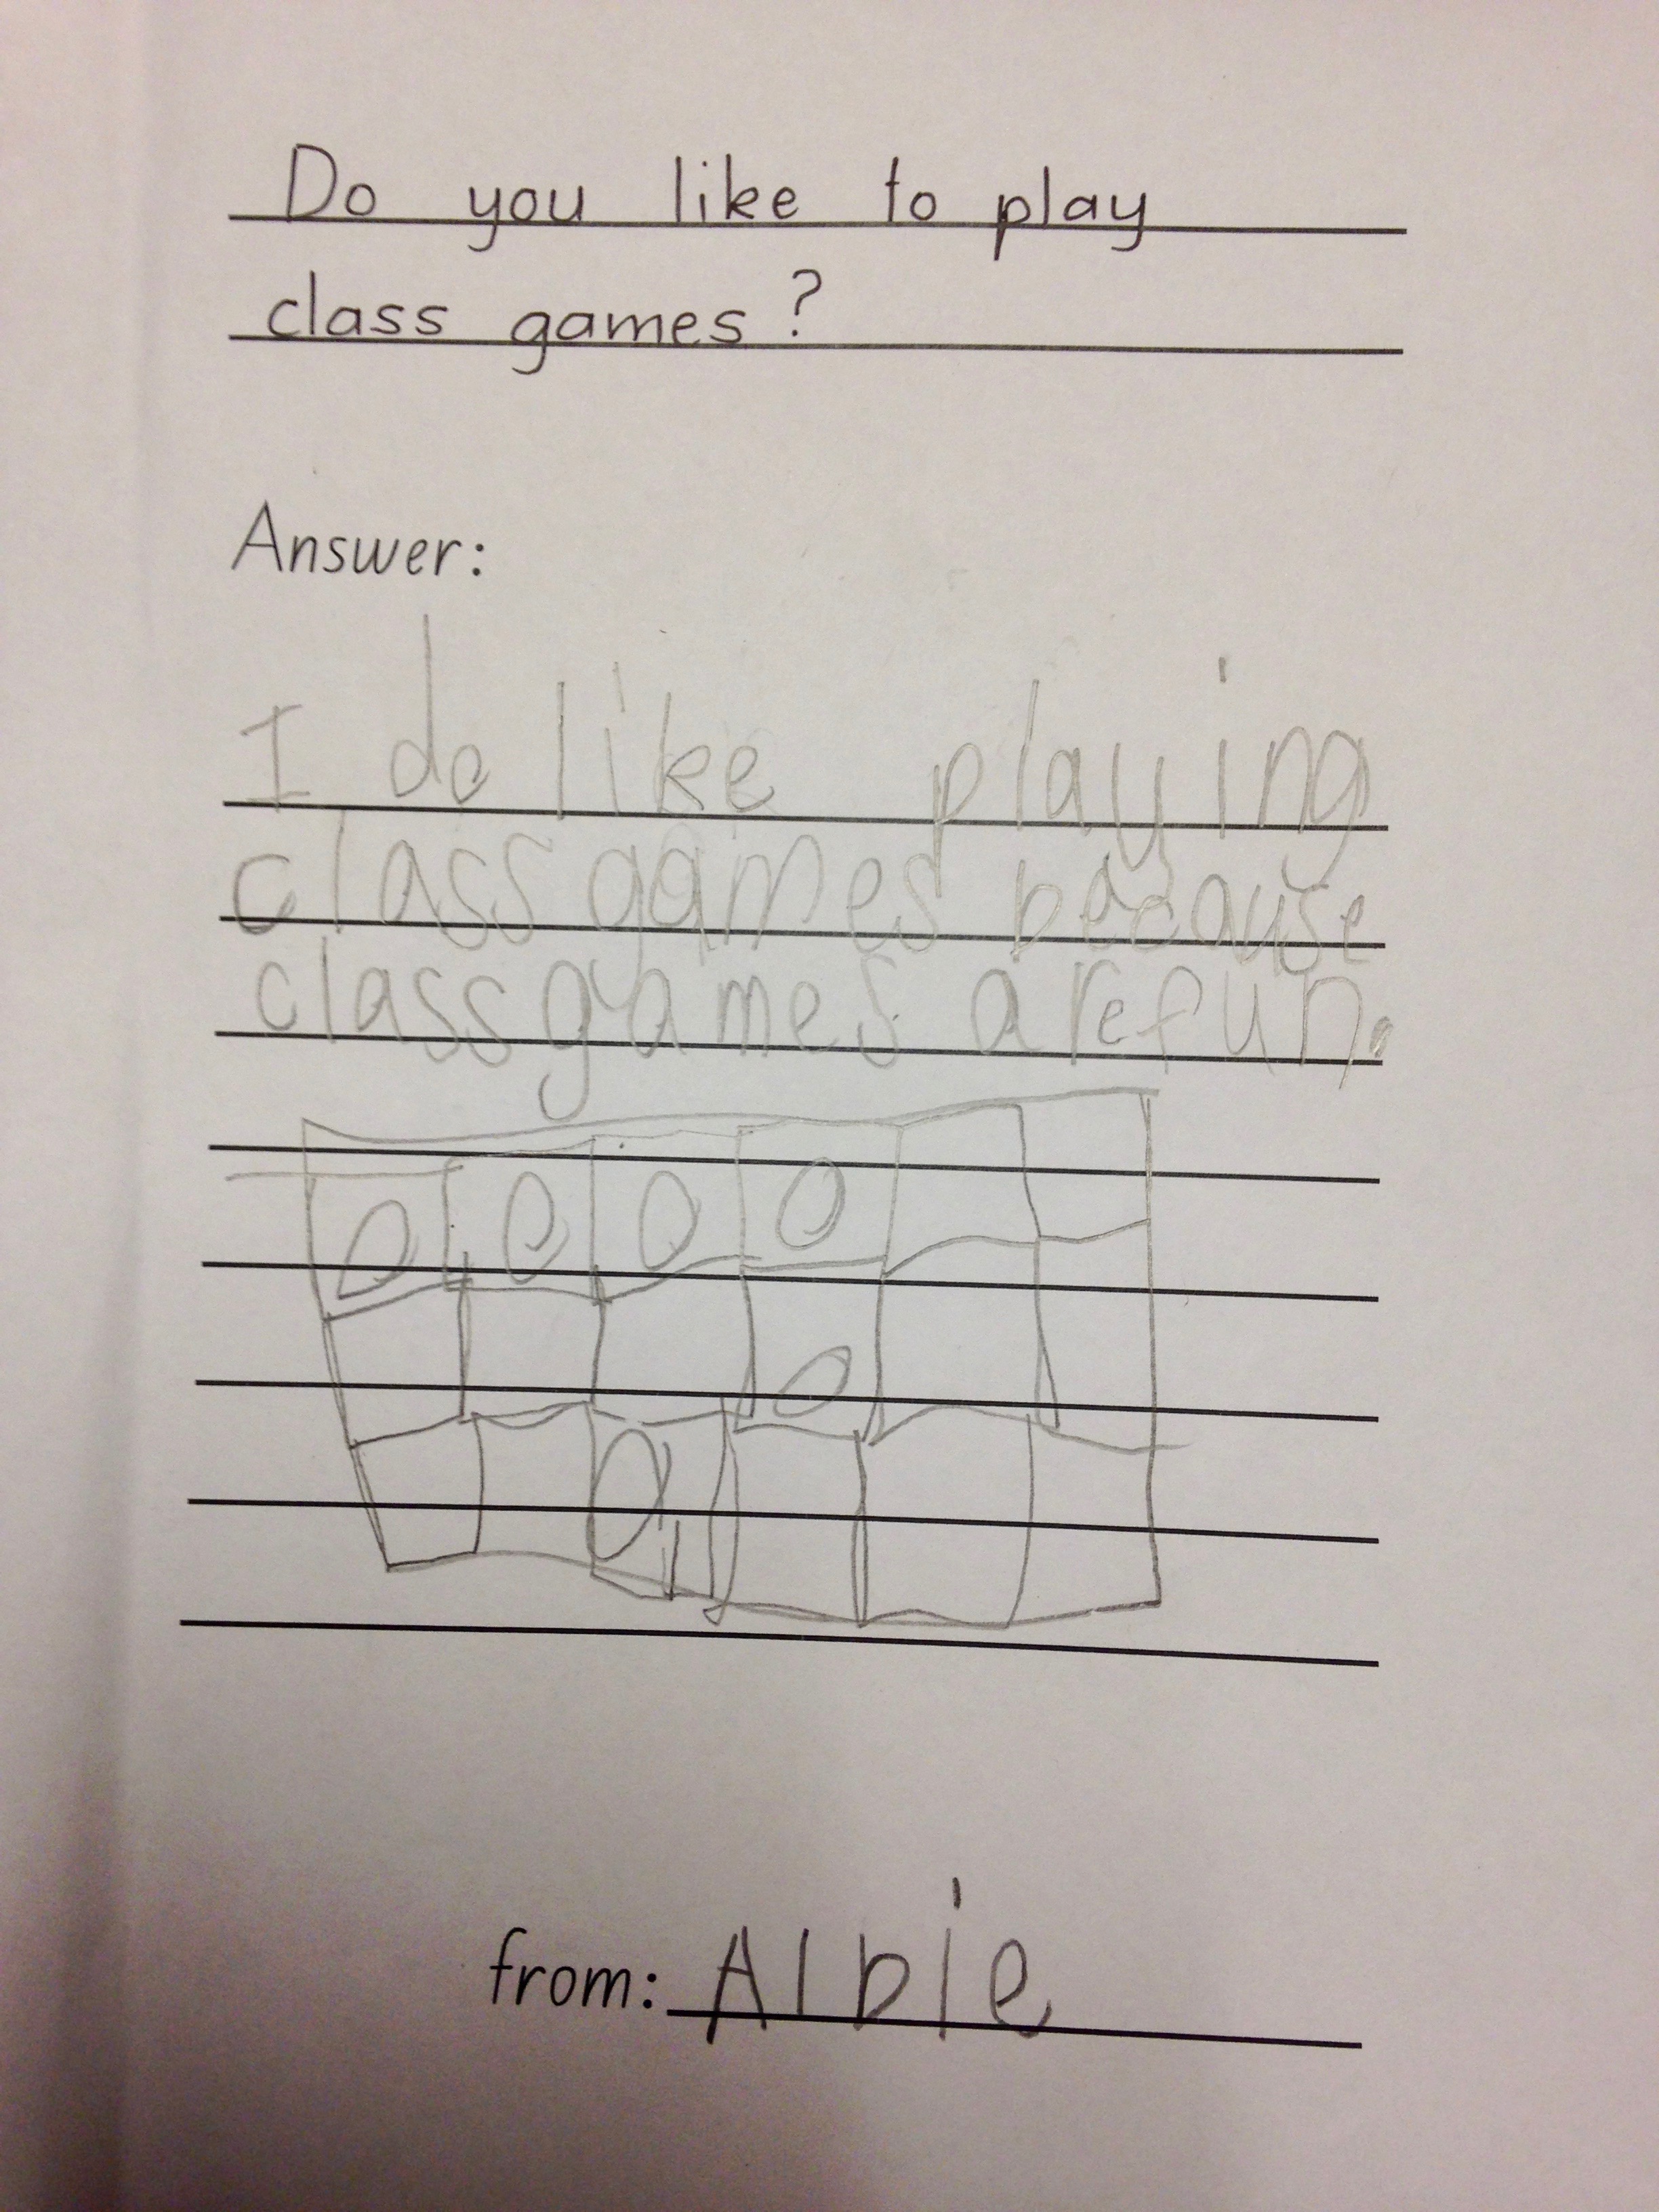 Do you like to play
class games?
Answer:
I do like playing
class games because
class games are fun.
from: Albie